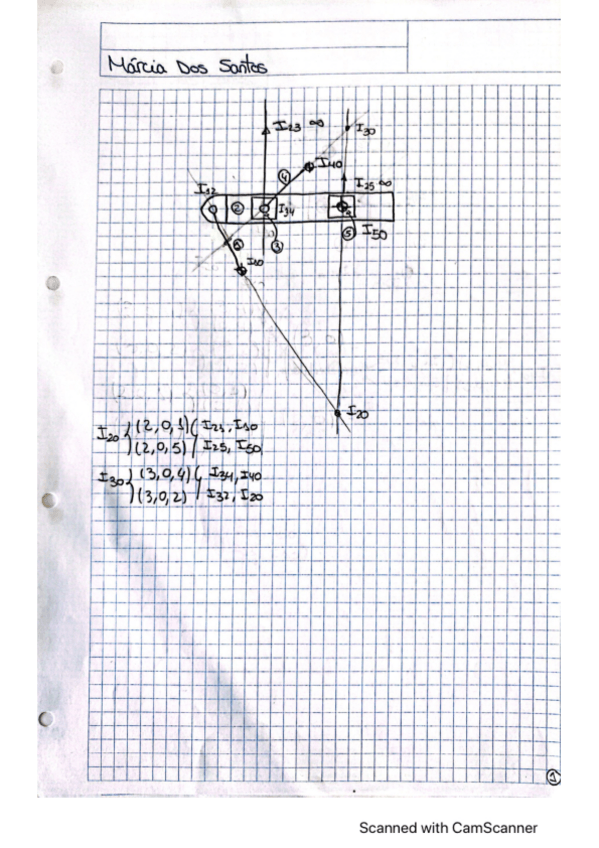 Márcia Dos Santos
I23 ∞
I30
I40
④
I25 ∞
I12
②
I34
③
⑤
I50
I10
I20
I20 { (2,0,1) { I21, I10
(2,0,5) { I25, I50
I30 { (3,0,4) { I34, I40
(3,0,2) { I32, I20
①
Scanned with CamScanner